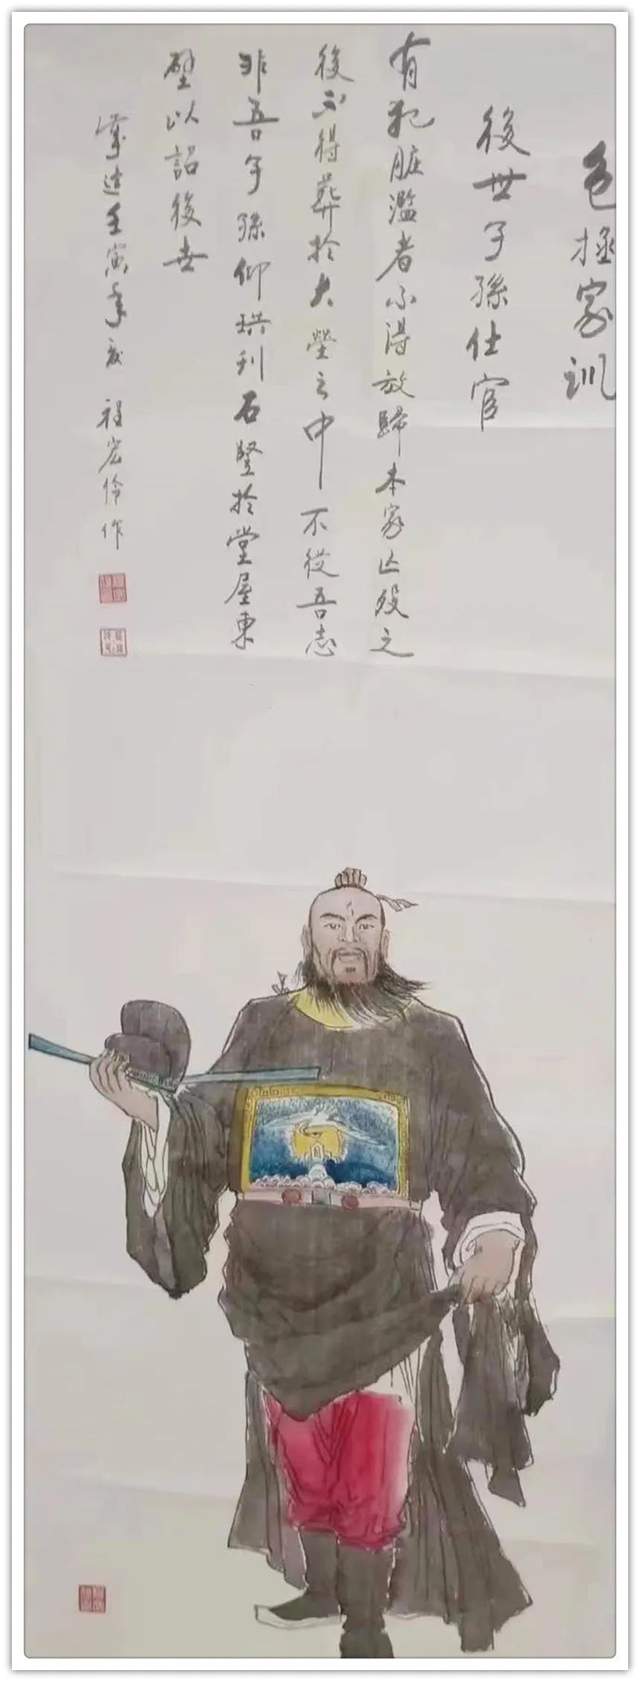 包拯家訓
後世子孫仕官
有犯脏濫者不得放歸本家亡殁之
後不得葬於大塋之中不從吾志
非吾子孫仰珙刊石豎於堂屋東
壁以詔後世
壬寅年夏 程宏伶作